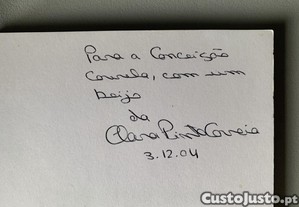 Para a Conceição
Courela, com um
beijo
da
Clara Pinto Correia
3.12.04
CustoJusto.pt